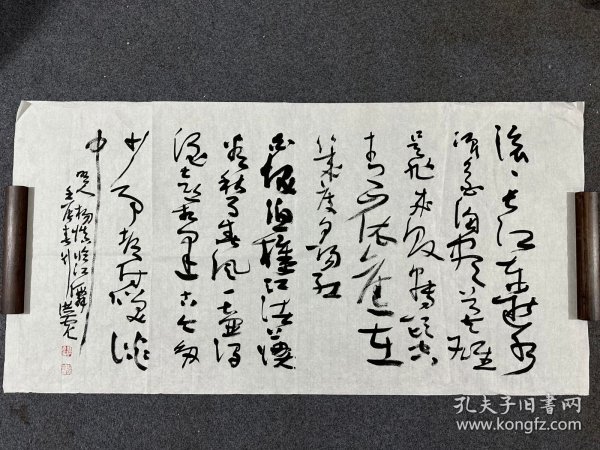 滚〻长江东逝水
浪花淘尽英雄
是非成败转头空
青山依旧在
几度夕阳红
白发渔樵江渚上
惯看秋月春风一壶浊
酒喜相逢古今多
少事都付笑谈
中
杨慎临江仙
孔夫子旧书网
www.kongfz.com